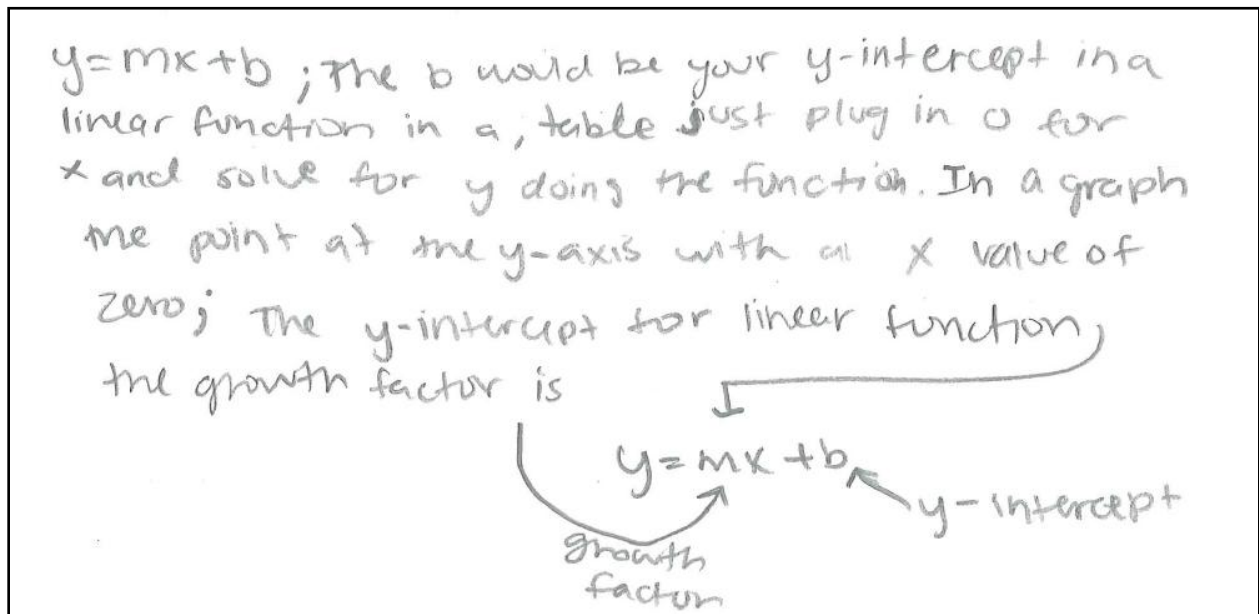 y=mx+b ; The b would be your y-intercept in a
linear function in a, table just plug in 0 for
x and solve for y doing the function. In a graph
the point at the y-axis with a x value of
zero; The y-intercept for linear function,
the growth factor is
y=mx+b
y-intercept
growth
factor